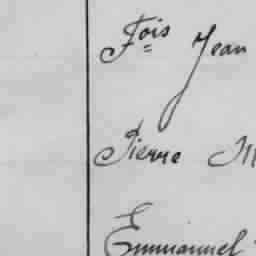 Fois Jean
Pierre M
Emmanuel